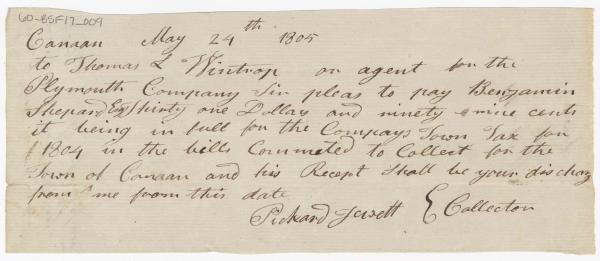 60-BSF17_009
Canaan May 24th 1805
to Thomas L Wintrop or agent for the
Plymouth Company Sir pleas to pay Benjamin
Shepard Esq Thirty one Dollars and ninety nine cents
it being in full for the Compays Town Tax for
1804 in the bills Commeted to Collect for the
Town of Canaan and his Recept Shall be your discharg
from me from this date
Pickard Jewett { Collector